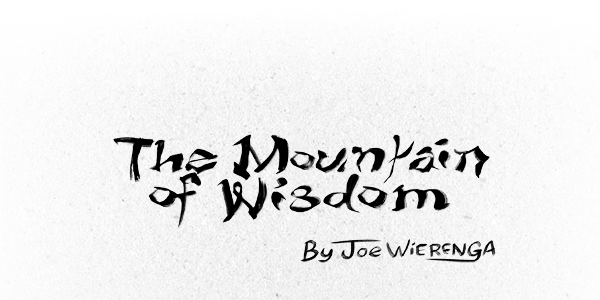 The Mountain
of Wisdom
By Joe Wierenga